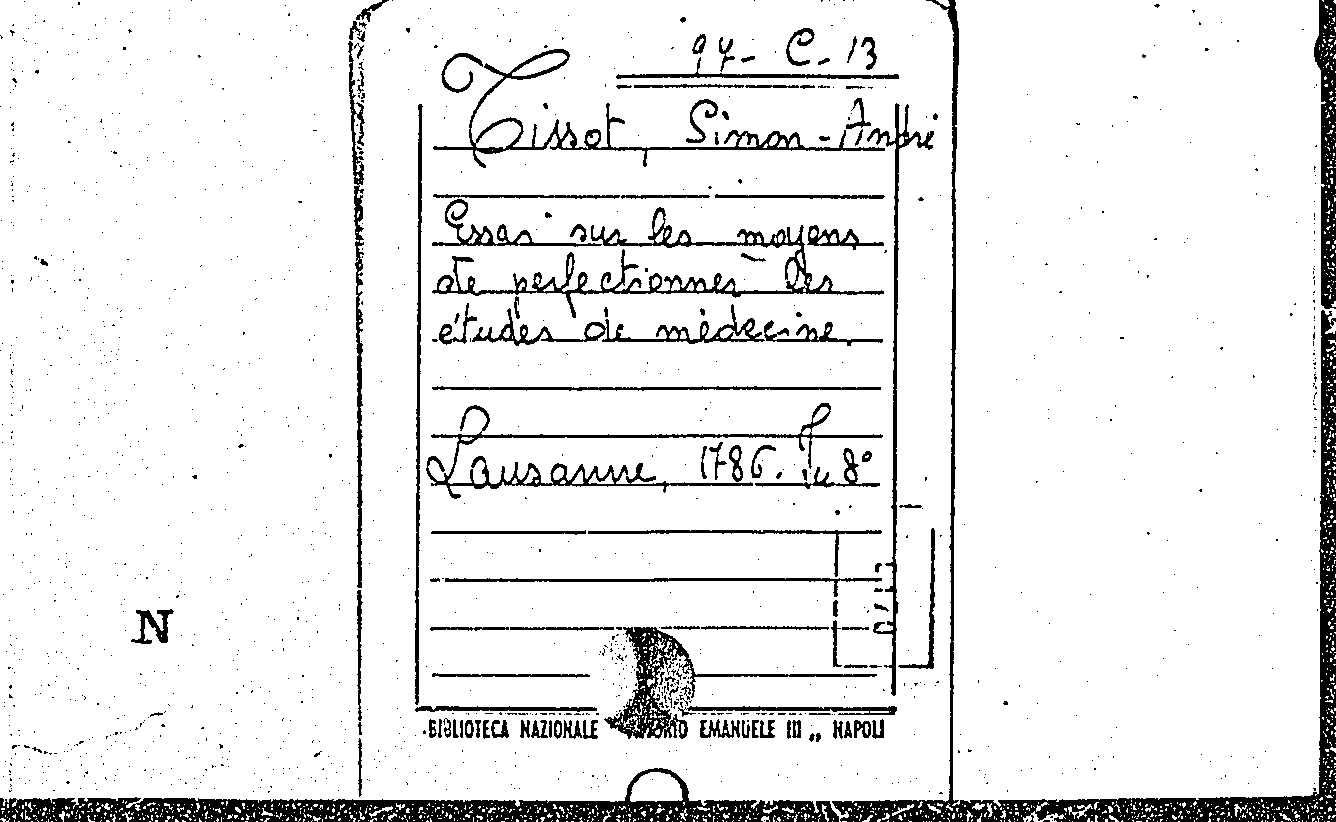 97- C- 13
Tissot, Simon-André
Essai sur les moyens
de perfectionner les
études de médecine.
Lausanne, 1786. In 8°
N
BIBLIOTECA NAZIONALE EMANUELE III „ NAPOLI